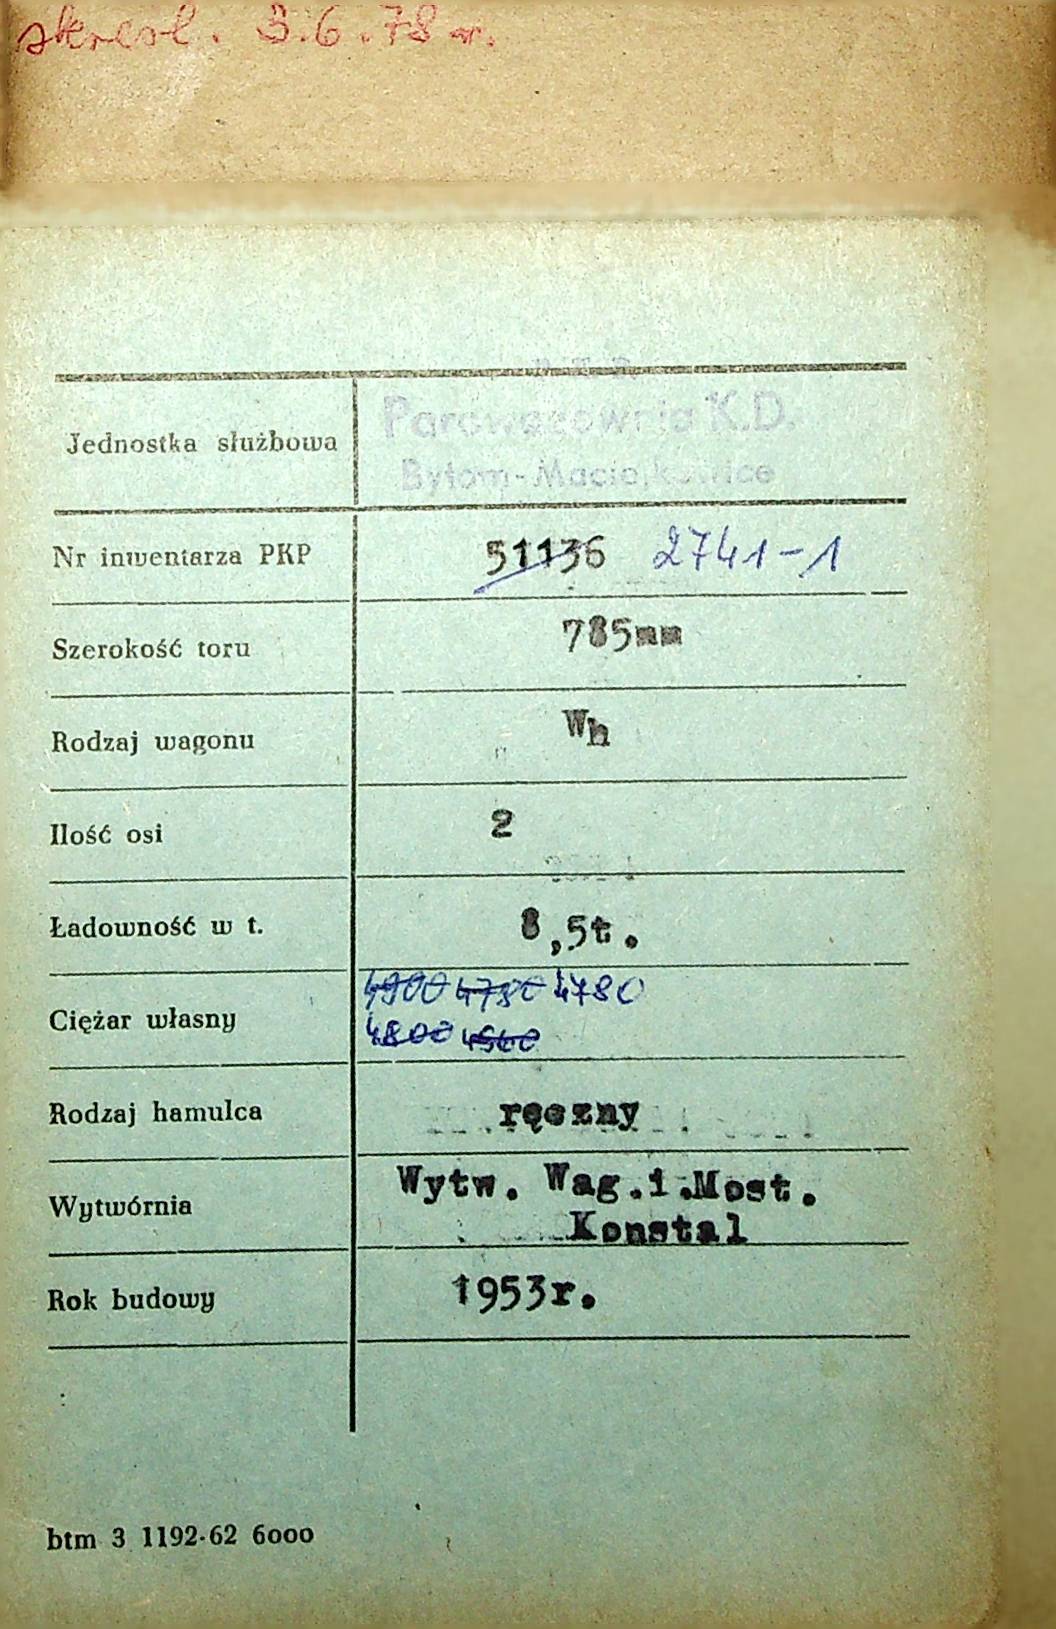 skreśl. 3.6.78 r.
Parowozownia K.D.
Jednostka służbowa
Bytom-Maciejkowice
Nr inwentarza PKP 51136 2741-1
Szerokość toru 785mm
Rodzaj wagonu Wh
Ilość osi 2
Ładowność w t. 8,5t.
4900 4750 4780
Ciężar własny
4800
Rodzaj hamulca ręczny
Wytwórnia Wytw. Wag.i.Most.
Konstal
Rok budowy 1953r.
btm 3 1192-62 6000